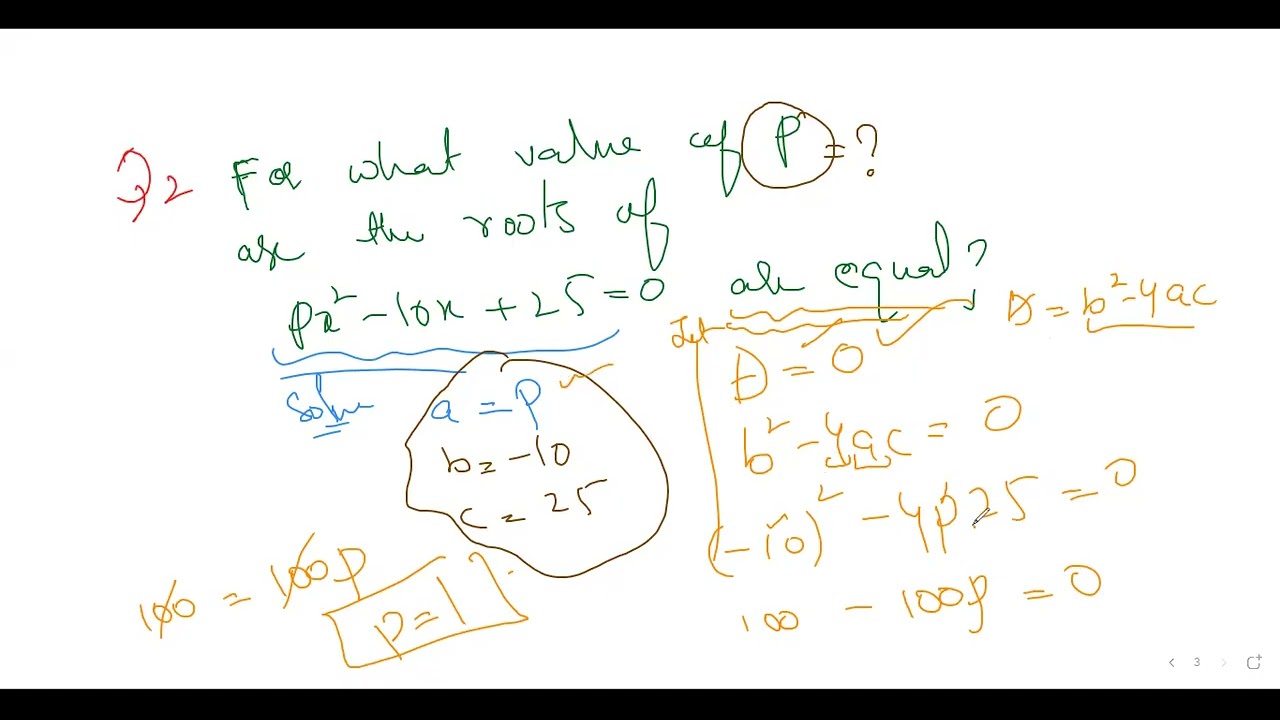 Q2 For what value of P = ?
are the roots of
px² - 10x + 25 = 0 are equal?
D = b² - 4ac
Soln a = P
b = -10
c = 25
D = 0
b² - 4ac = 0
(-10)² - 4p25 = 0
100 - 100p = 0
100 = 100p
p = 1
3